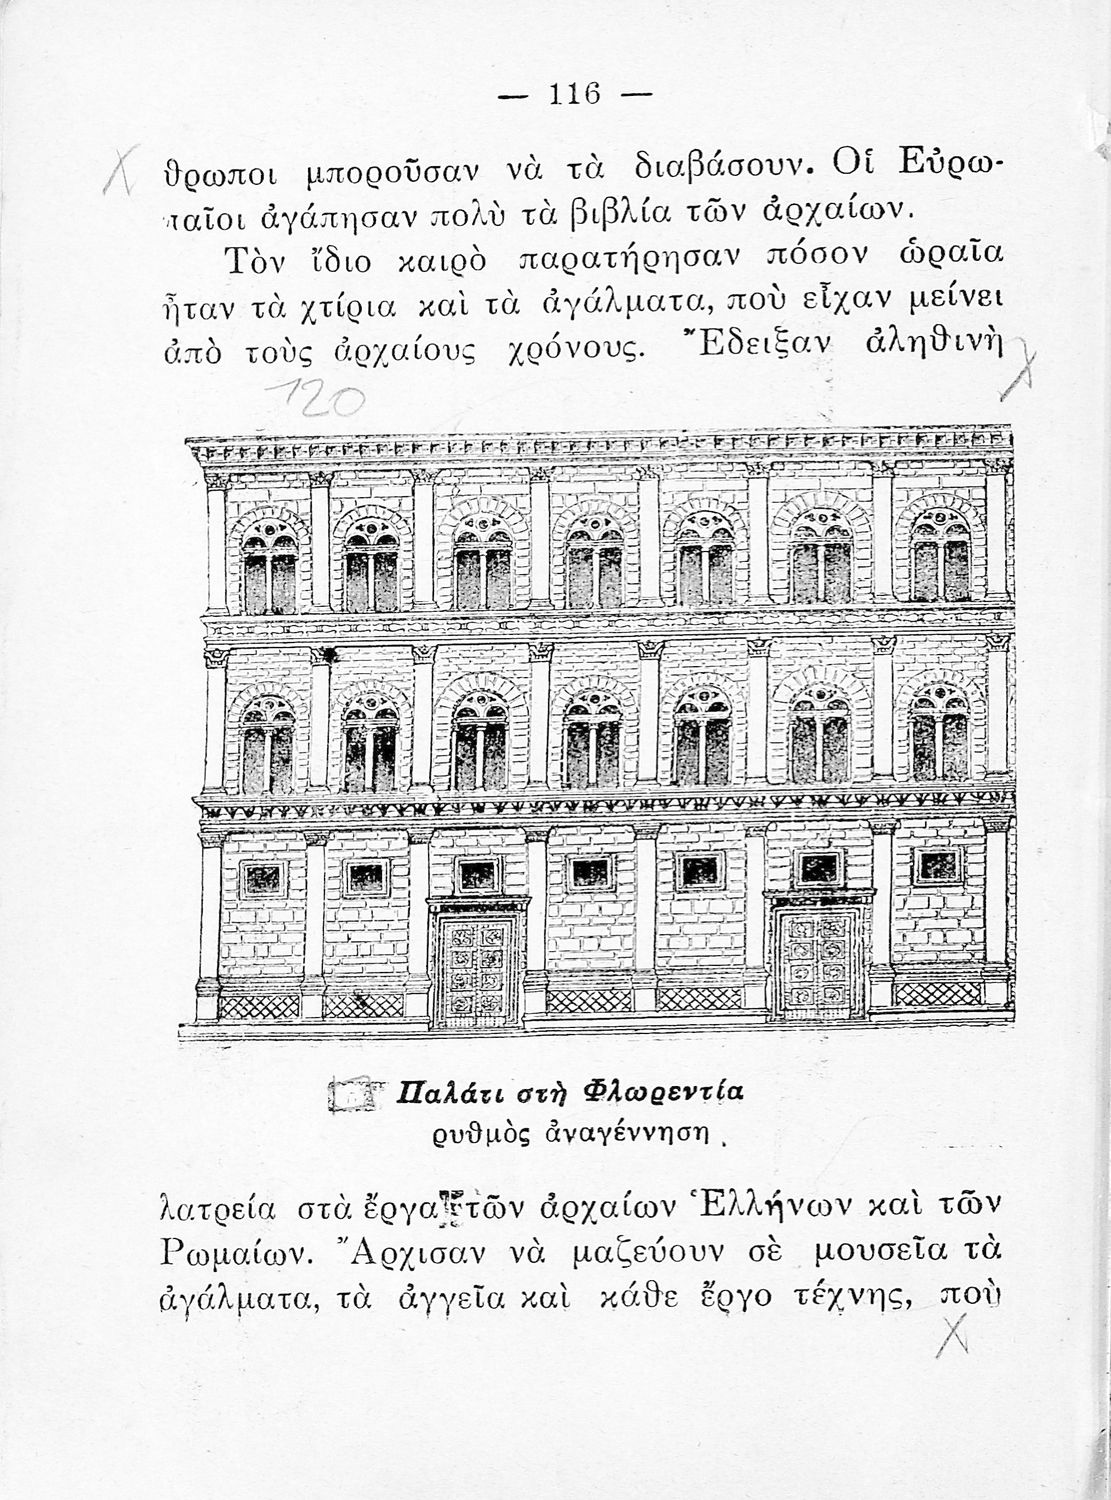 — 116 —
θρωποι μποροῦσαν νὰ τὰ διαβάσουν. Οἱ Εὐρω-
παῖοι ἀγάπησαν πολὺ τὰ βιβλία τῶν ἀρχαίων.
Τὸν ἴδιο καιρὸ παρατήρησαν πόσον ὡραῖα
ἦταν τὰ χτίρια καὶ τὰ ἀγάλματα, ποὺ εἶχαν μείνει
ἀπὸ τοὺς ἀρχαίους χρόνους. Ἔδειξαν ἀληθινὴ
120
Παλάτι στὴ Φλωρεντία
ρυθμὸς ἀναγέννηση .
λατρεία στὰ ἔργα τῶν ἀρχαίων Ἑλλήνων καὶ τῶν
Ρωμαίων. Ἄρχισαν νὰ μαζεύουν σὲ μουσεῖα τὰ
ἀγάλματα, τὰ ἀγγεῖα καὶ κάθε ἔργο τέχνης, ποὺ